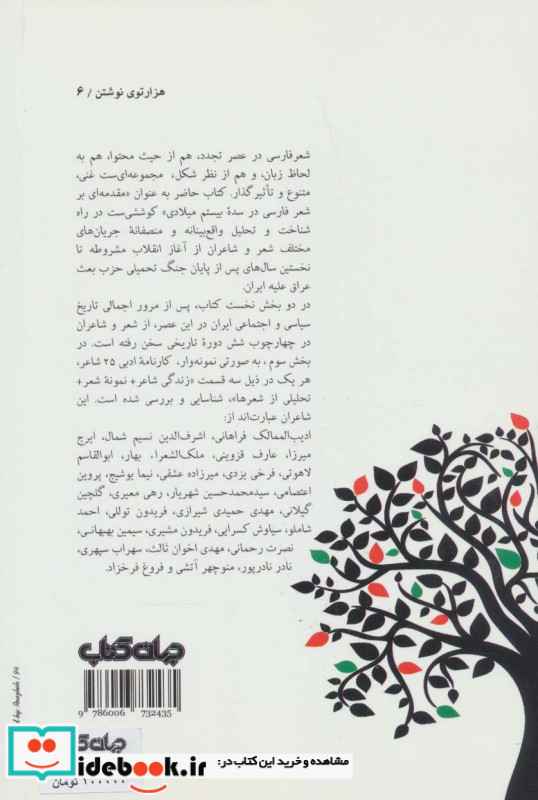 هزارتوی نوشتن / ۶
شعرفارسی در عصر تجدد، هم از حیث محتوا، هم به
لحاظ زبان، و هم از نظر شکل، مجموعه‌ای‌ست غنی،
متنوع و تأثیرگذار. کتاب حاضر به عنوان «مقدمه‌ای بر
شعر فارسی در سدهٔ بیستم میلادی» کوششی‌ست در راه
شناخت و تحلیل واقع‌بینانه و منصفانهٔ جریان‌های
مختلف شعر و شاعران از آغاز انقلاب مشروطه تا
نخستین سال‌های پس از پایان جنگ تحمیلی حزب بعث
عراق علیه ایران.
در دو بخش نخست کتاب، پس از مرور اجمالی تاریخ
سیاسی و اجتماعی ایران در این عصر، از شعر و شاعران
در چهارچوب شش دورهٔ تاریخی سخن رفته است. در
بخش سوم، به صورتی نمونه‌وار، کارنامهٔ ادبی ۲۵ شاعر،
هر یک در ذیل سه قسمت «زندگی شاعر+ نمونهٔ شعر+
تحلیلی از شعرها»، شناسایی و بررسی شده است. این
شاعران عبارت‌اند از:
ادیب‌الممالک فراهانی، اشرف‌الدین نسیم شمال، ایرج
میرزا، عارف قزوینی، ملک‌الشعراء بهار، ابوالقاسم
لاهوتی، فرخی یزدی، میرزاده عشقی، نیما یوشیج، پروین
اعتصامی، سیدمحمدحسین شهریار، رهی معیری، گلچین
گیلانی، مهدی حمیدی شیرازی، فریدون توللی، احمد
شاملو، سیاوش کسرایی، فریدون مشیری، سیمین بهبهانی،
نصرت رحمانی، مهدی اخوان ثالث، سهراب سپهری،
نادر نادرپور، منوچهر آتشی و فروغ فرخزاد.
جهان کتاب
9 786006 732435
مشاهده و خرید این کتاب در:
idebook.ir
۱۰۰۰۰۰ تومان